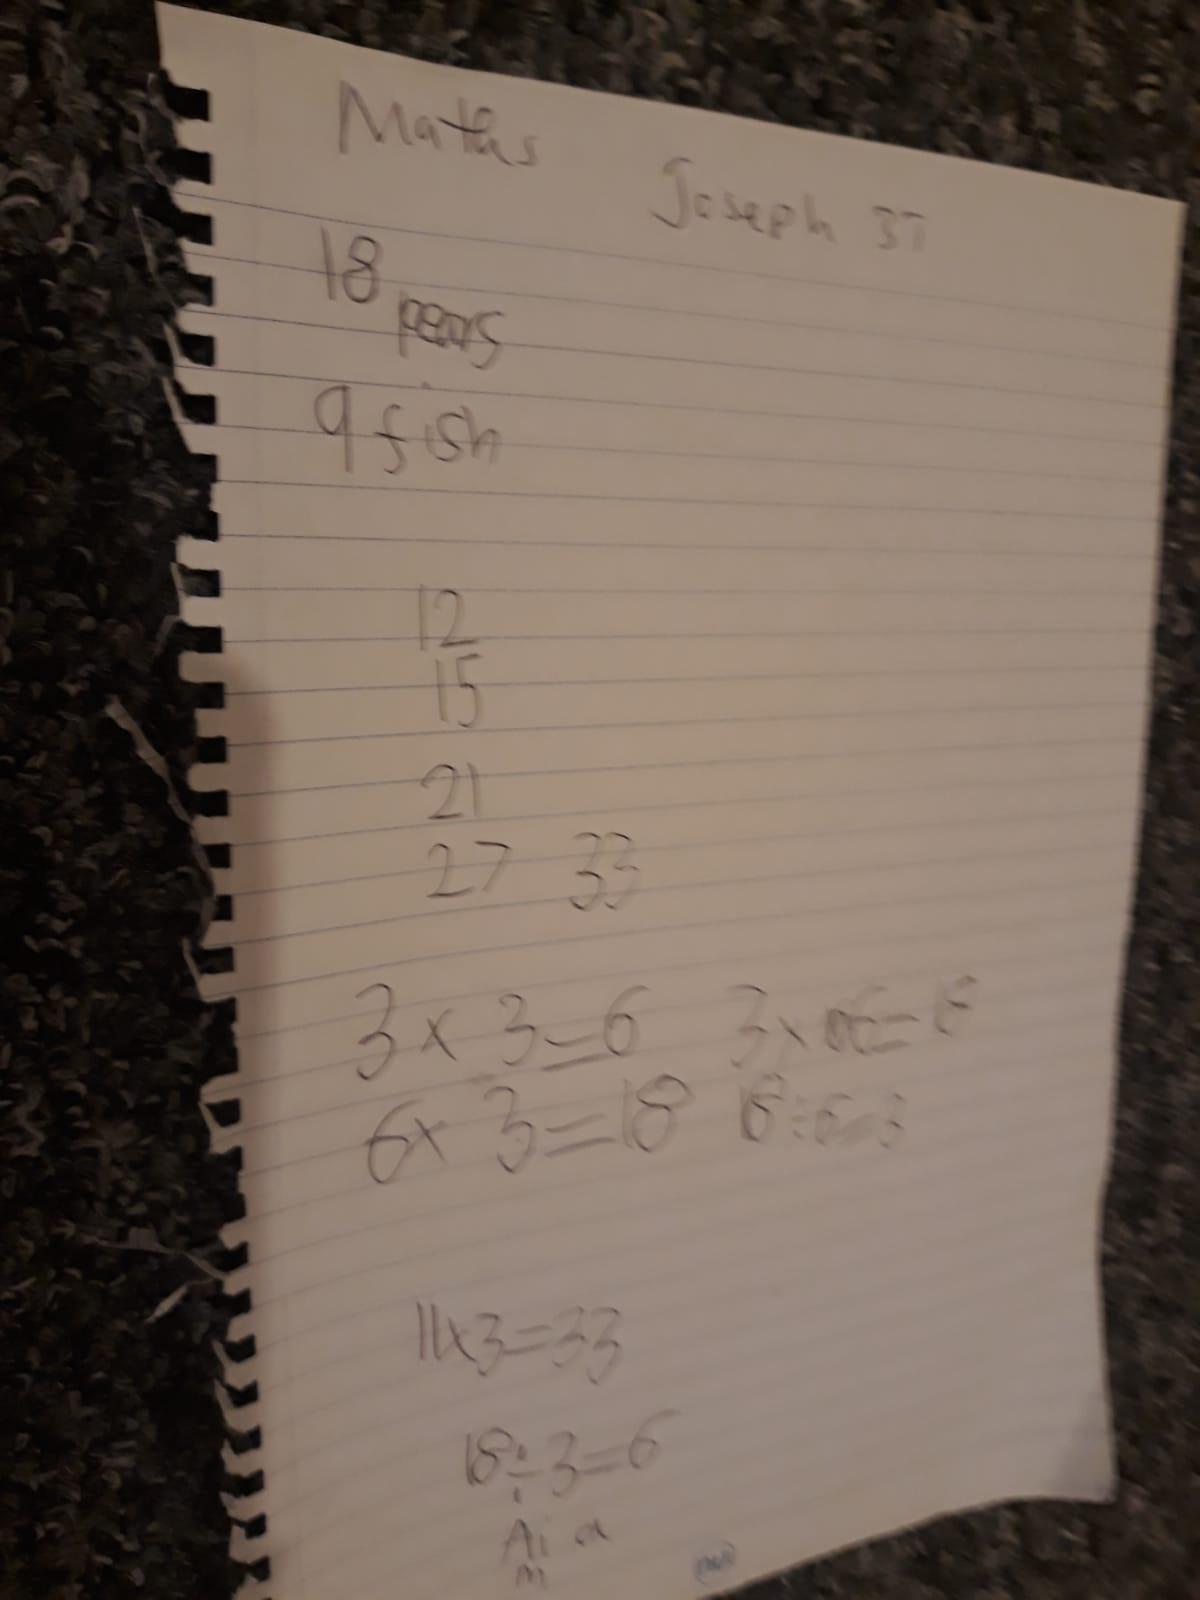 Maths
Joseph 3T
18
pears
9 fish
12
15
21
27 33
3 x 3=6 3 x
6x 3=18 18÷6=3
11x3=33
18÷3=6